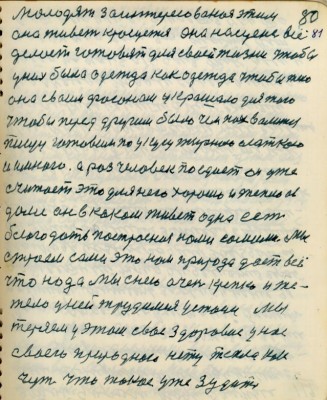 молодяж заинтересованая этим 80
она живет красуется она научена всё 81
делает готовят для своей жизни чтобы
у них была одежда как одежда чтобы жто
она своим фасоном украшало для того
чтобы перед другим было чем похвалится
пищу готовим по вкусу жирного сладкого
и много. а раз человек поедает он уже
считает это для него хорошо и тепло в
доме он в каком живет одна есть
благодать построеная нами самими мы
строем сами это нам природа дает всё
что нода мы с нею очен крепко и тя-
жело у ней трудимся устаем мы
теряем у этом свое здоровие у нас
своего природного нету тепла как
чут что такое уже зудит